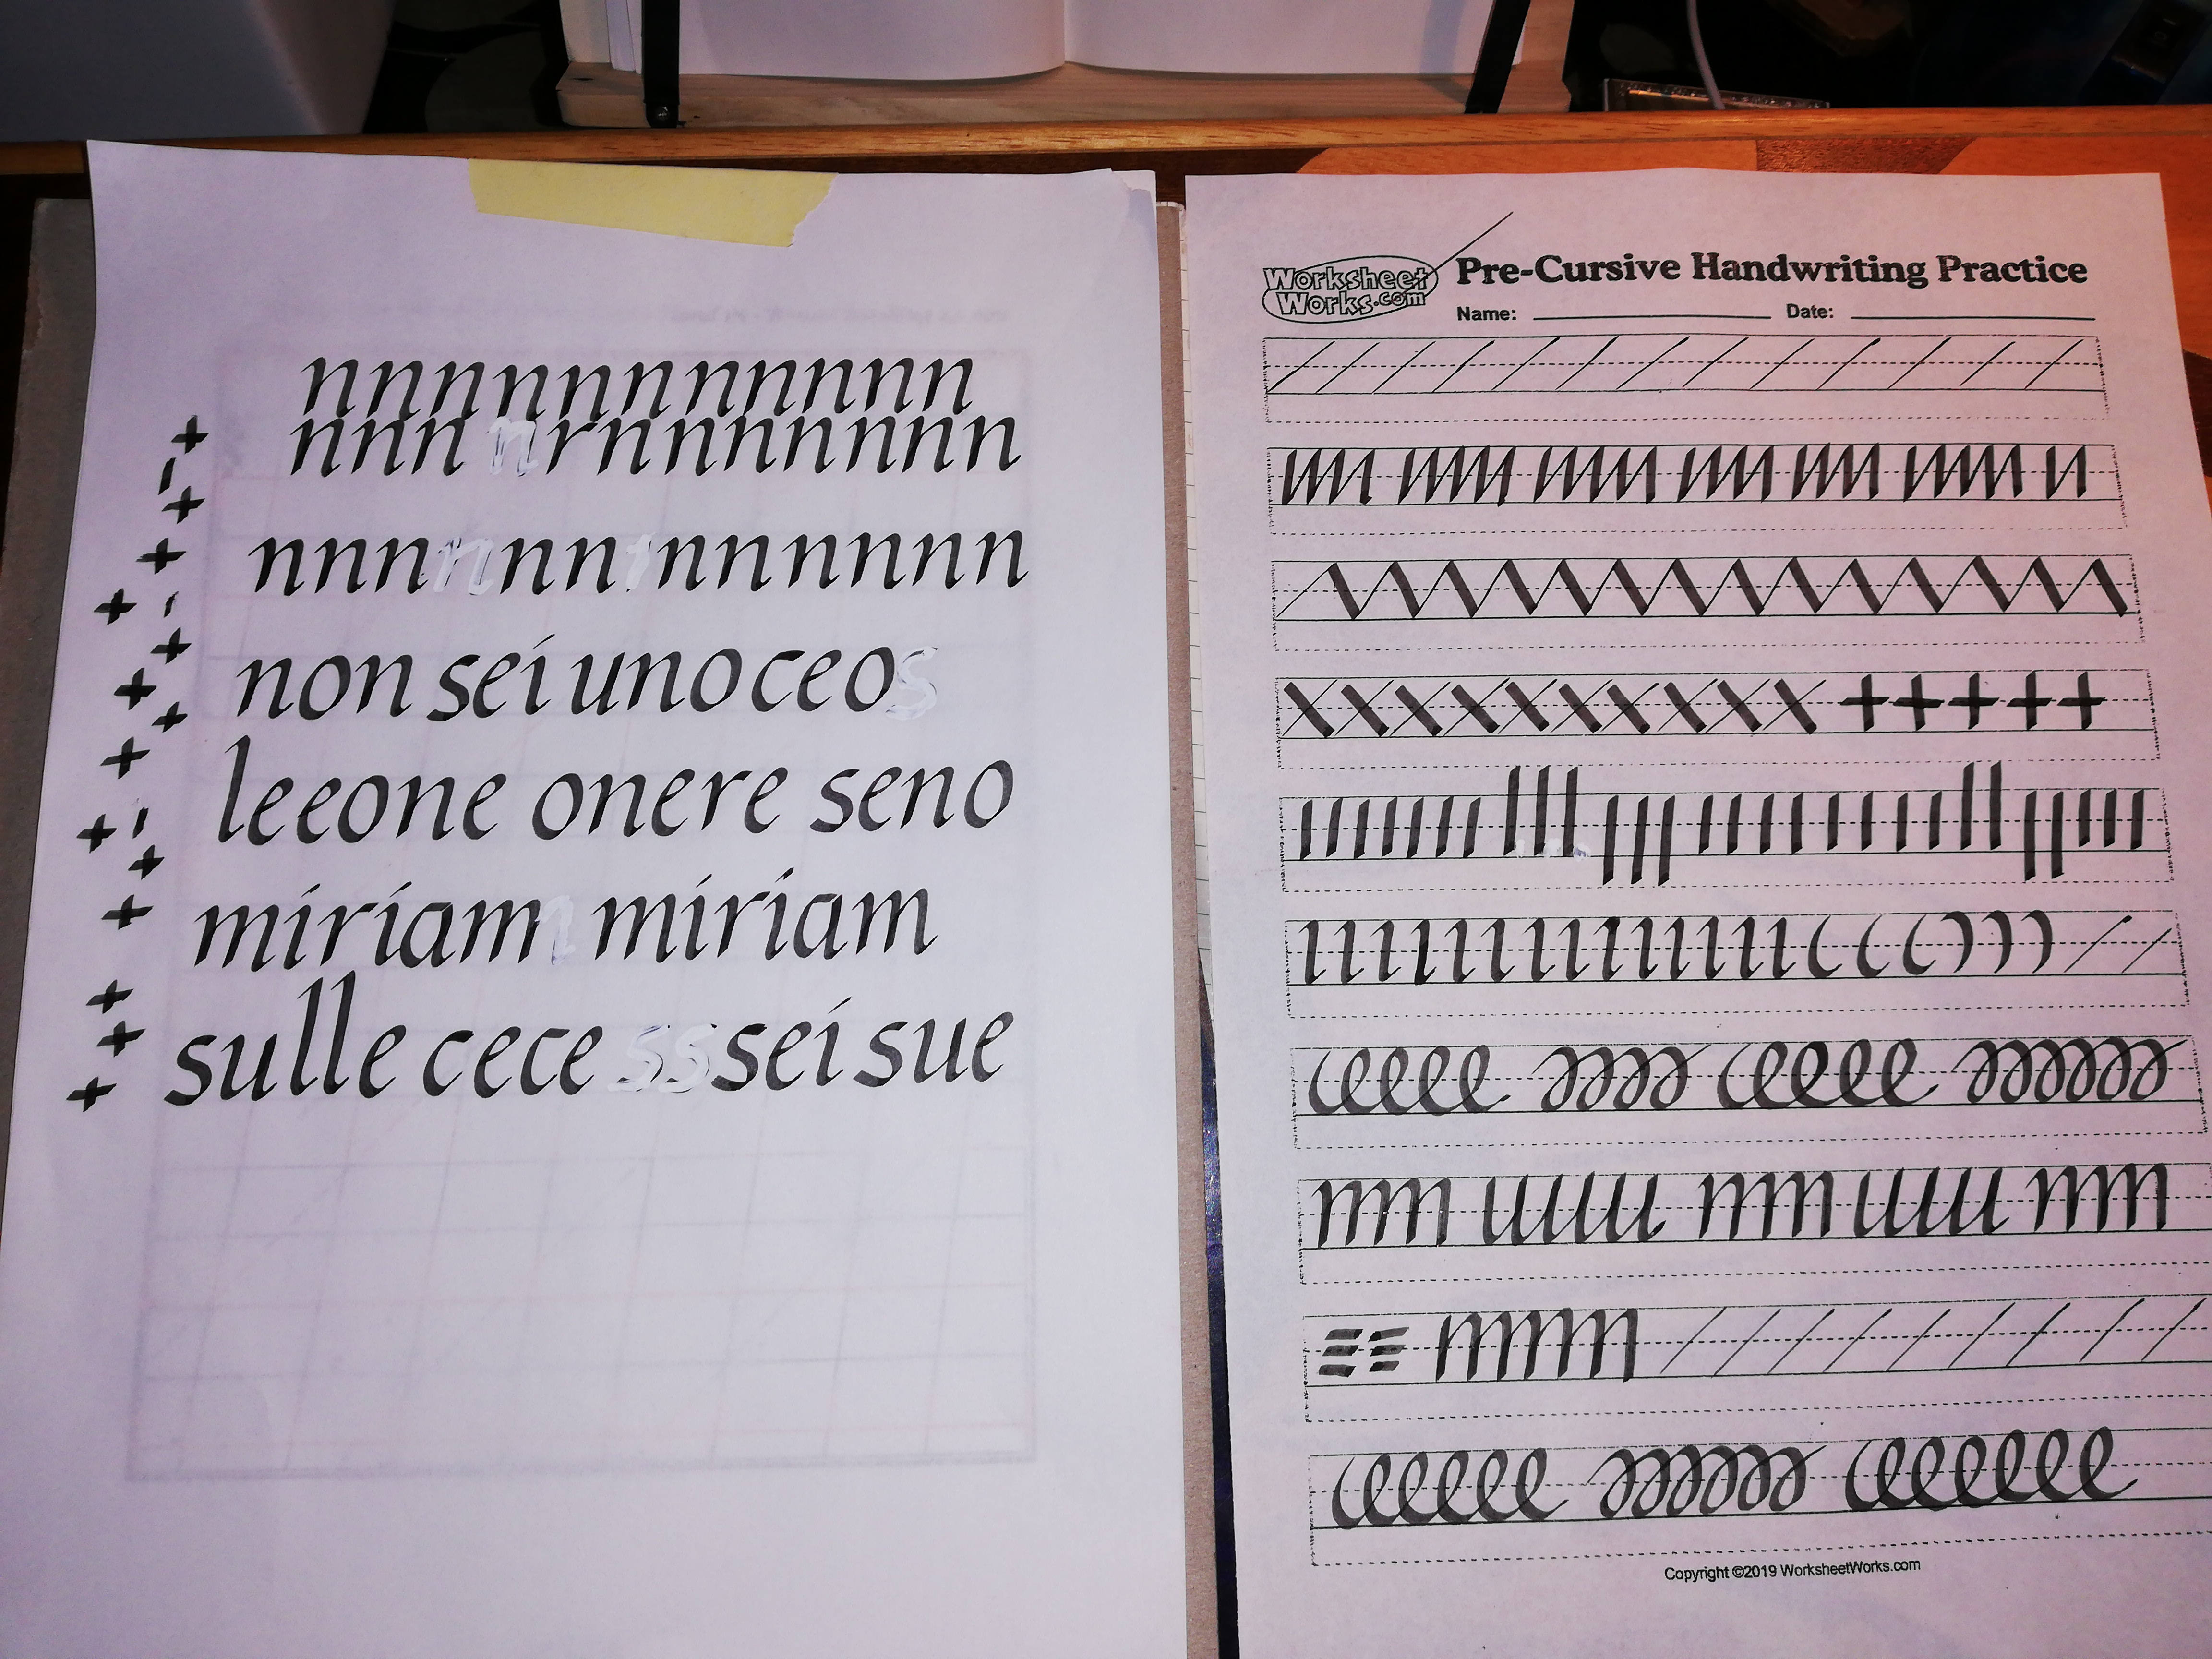 nnnnnnnnnnn
nnn rnnnnnnn
nnn nn nnnnnn
non sei uno ceo
leeone onere seno
miriam miriam
sulle cece ssei sue
Worksheet Works.com
Pre-Cursive Handwriting Practice
Name: Date:
Copyright ©2019 WorksheetWorks.com